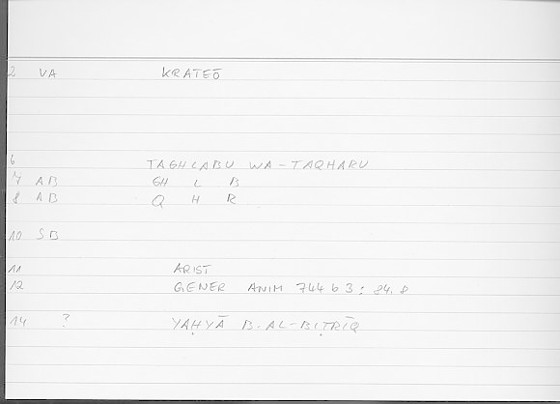 2 VA KRATEŌ
6 TAGHLABU WA-TAQHARU
7 AB GH L B
8 AB Q H R
10 SB
11 ARIST
12 GENER ANIM 744 b 3 : 84.8
14 ? YAḤYĀ B. AL-BIṬRĪQ